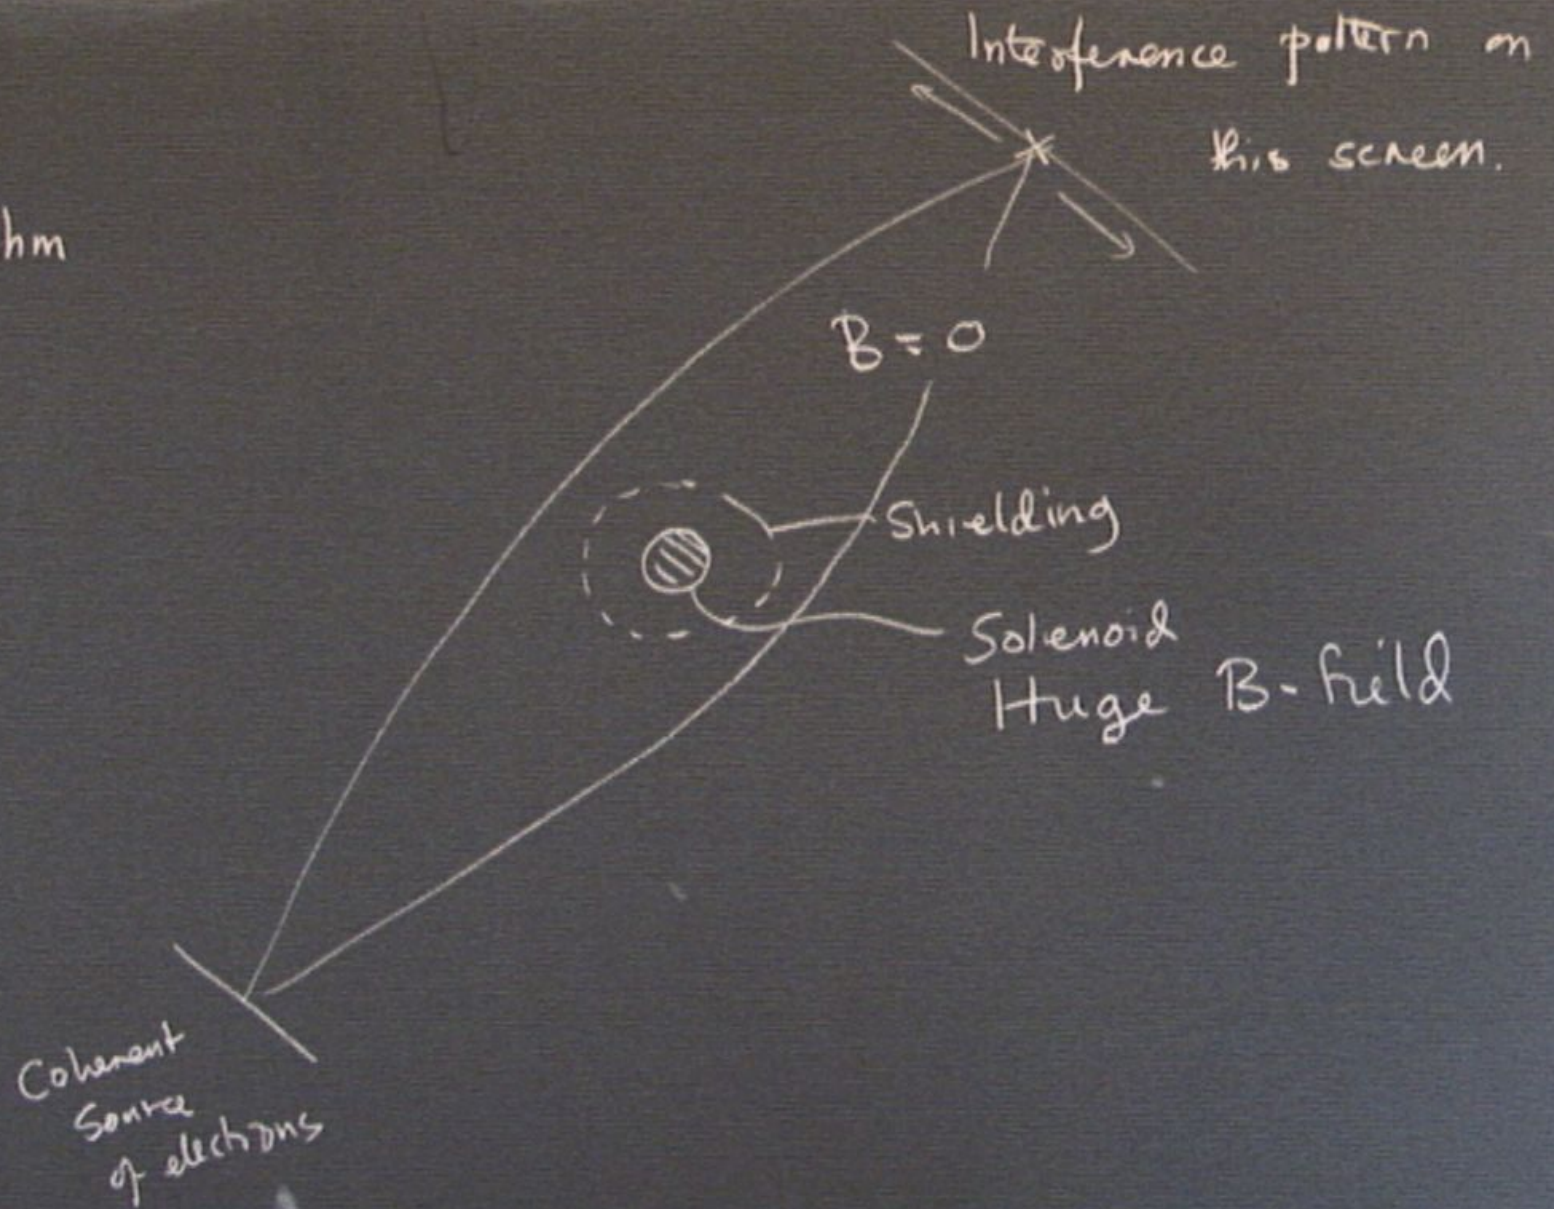 Interference pattern on
this screen.
hm
B = 0
Shielding
Solenoid
Huge B-field
Coherent
Source
of electrons